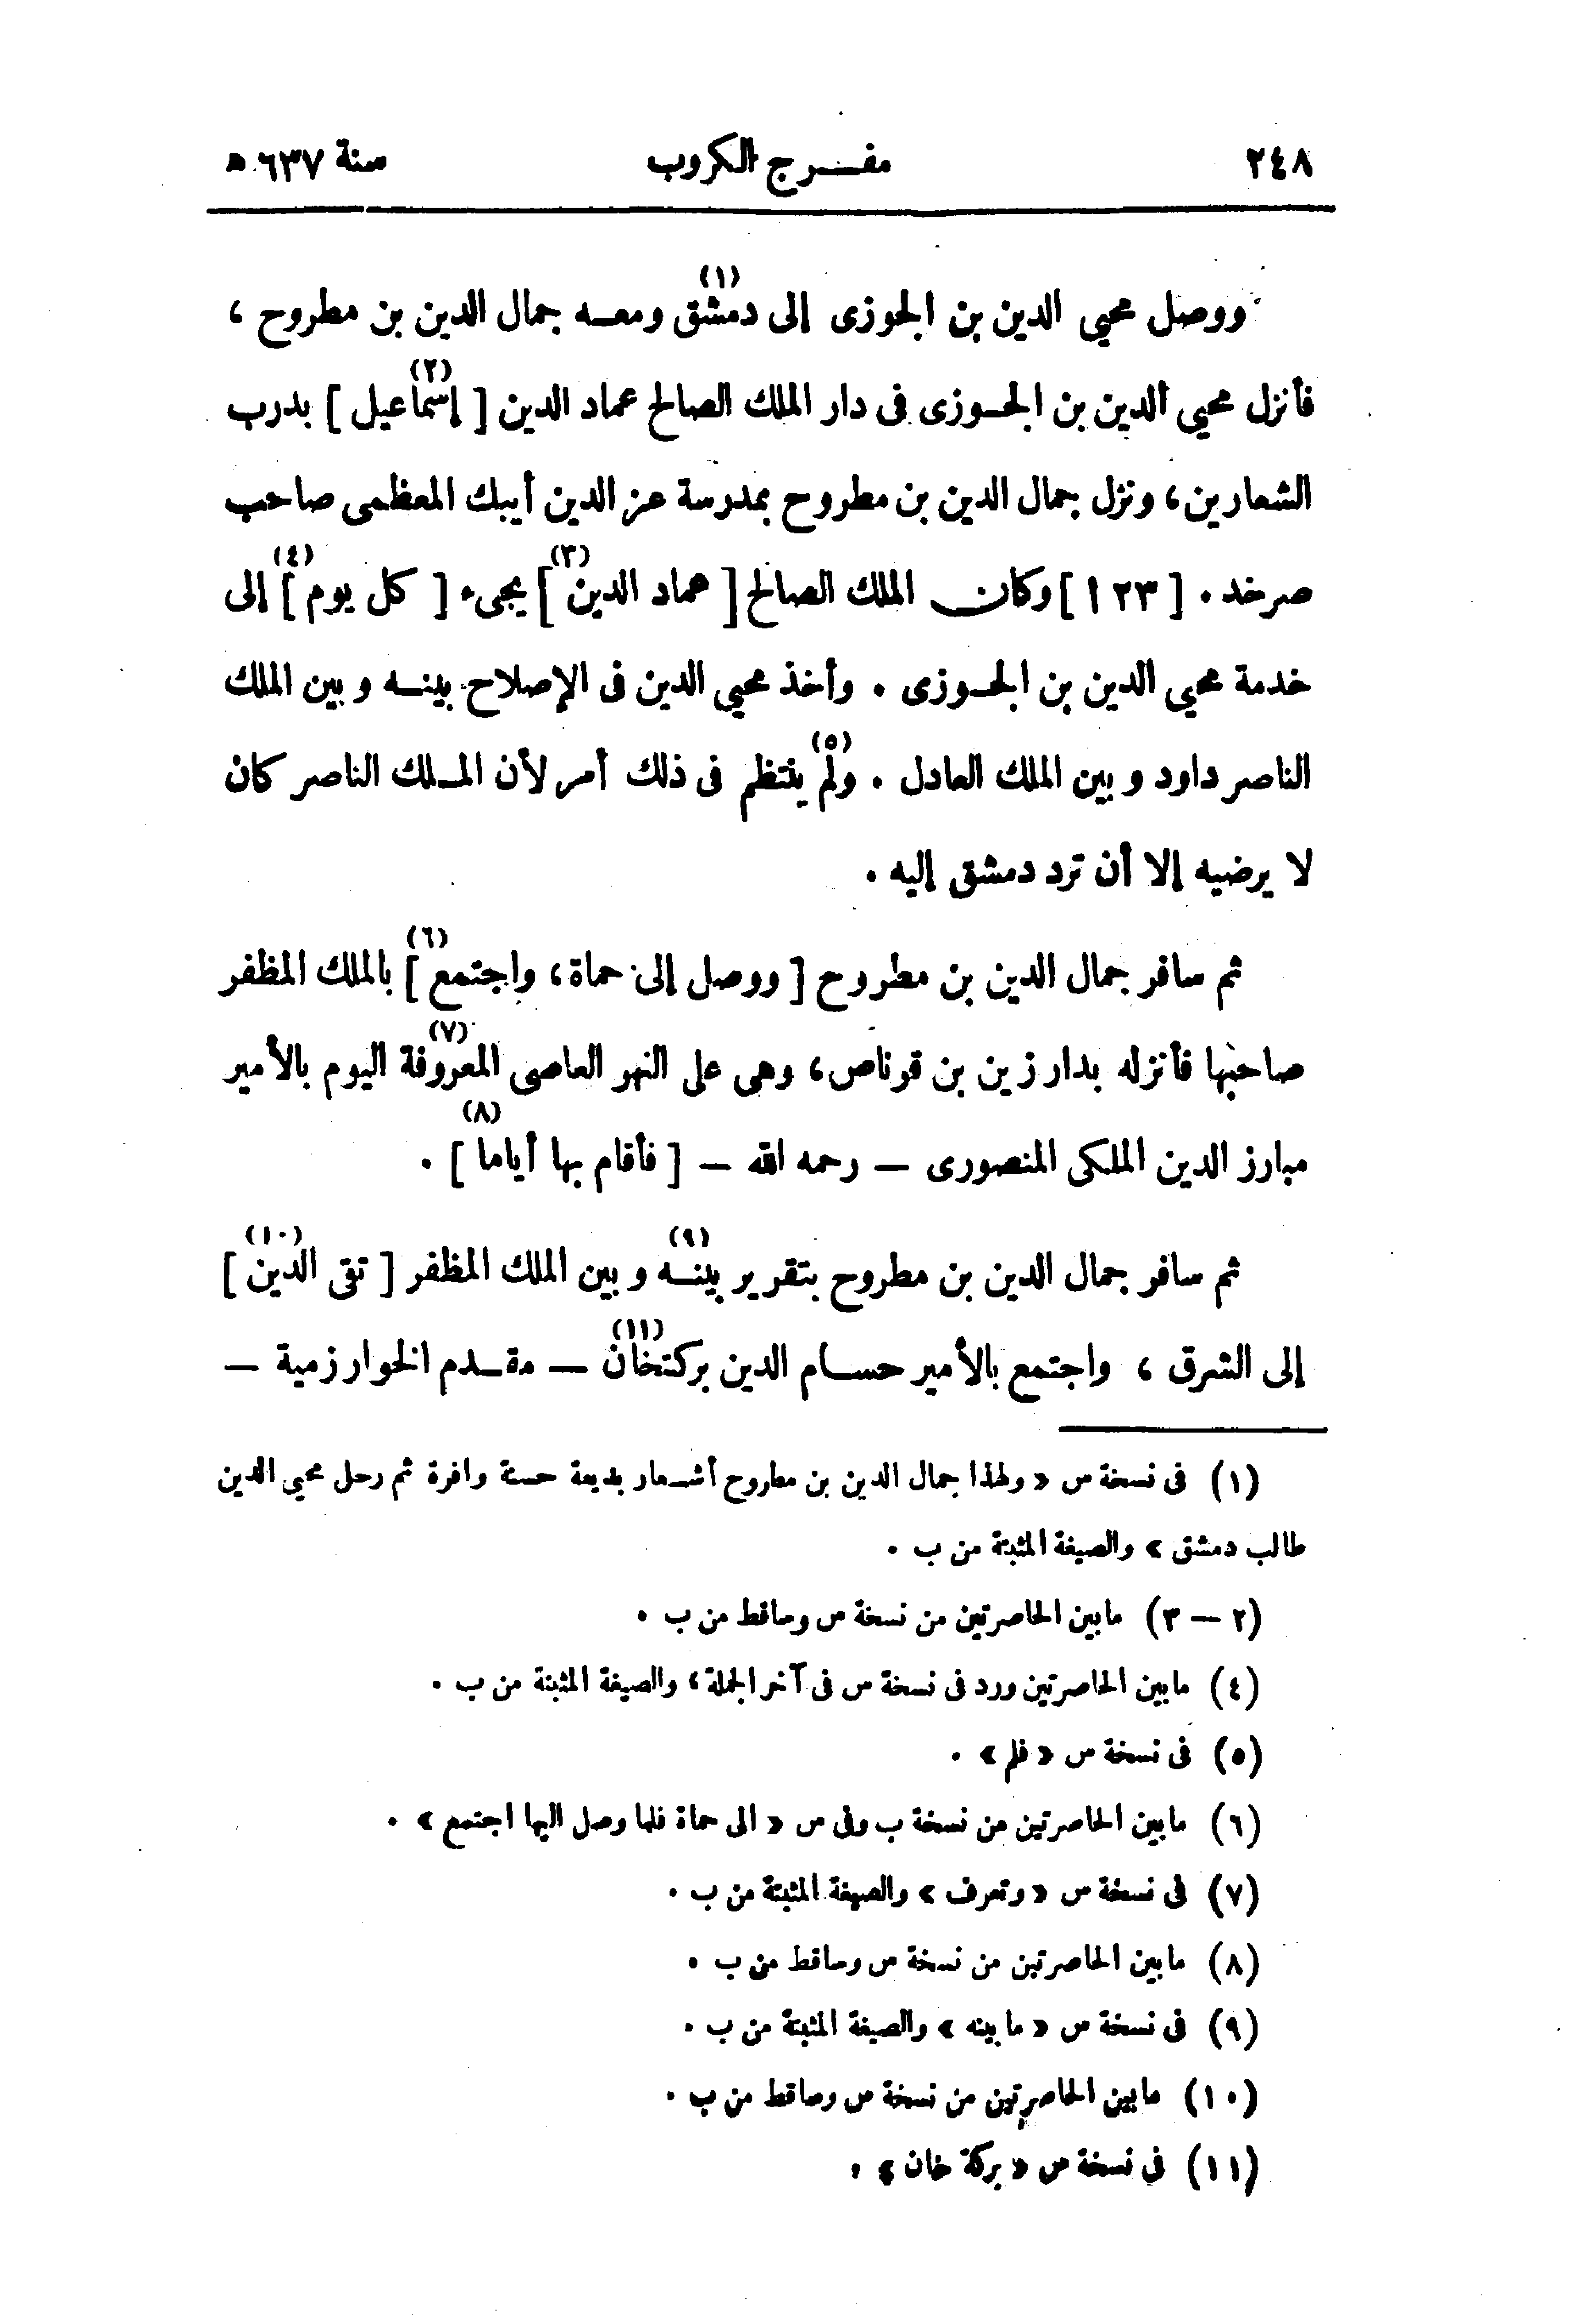 ٢٤٨ مفرج الكروب سنة ٦٣٧ هـ
ووصل محيي الدين بن الجوزى إلى دمشق (١) ومعه جمال الدين بن مطروح ،
فأنزل محيي الدين بن الجوزى فى دار الملك الصالح عماد الدين [ إسماعيل ] (٢) بدرب
الشعارين، ونزل جمال الدين بن مطروح بمدرسة عز الدين أيبك المعظمى صاحب
صرخد . [ ١٢٣ ] وكان الملك الصالح [ عماد الدين ] (٣) يجىء [ كل يوم ] (٤) إلى
خدمة محيي الدين بن الجوزى . وأخذ محيي الدين فى الإصلاح بينه وبين الملك
الناصر داود وبين الملك العادل . ولم (٥) ينتظم فى ذلك أمر لأن الملك الناصر كان
لا يرضيه إلا أن ترد دمشق إليه .
ثم سافر جمال الدين بن مطروح [ ووصل إلى حماة ، واجتمع ] (٦) بالملك المظفر
صاحبها فأنزله بدار زين بن قرناص ، وهى على النهر العاصى المعروفة (٧) اليوم بالأمير
مبارز الدين الملكى المنصورى — رحمه الله — [ فأقام بها أياما ] (٨) .
ثم سافر جمال الدين بن مطروح بتقرير بينه (٩) وبين الملك المظفر [ تقى الدين ] (١٠)
إلى الشرق ، واجتمع بالأمير حسام الدين بركتخان (١١) — مقدم الخوارزمية —
(١) فى نسخة س « ولهذا جمال الدين بن مطروح أشعار بديعة حسنة وافرة ثم رحل محيي الدين
طالب دمشق » والصيغة المثبتة من ب .
(٢ — ٣) مابين الحاصرتين من نسخة س وساقط من ب .
(٤) مابين الحاصرتين ورد فى نسخة س فى آخر الجملة ، والصيغة المثبتة من ب .
(٥) فى نسخة س « فلم » .
(٦) مابين الحاصرتين من نسخة ب وفى س « الى حماة فلما وصل اليها اجتمع » .
(٧) فى نسخة س « وتعرف » والصيغة المثبتة من ب .
(٨) مابين الحاصرتين من نسخة س وساقط من ب .
(٩) فى نسخة س « ما بينه » والصيغة المثبتة من ب .
(١٠) مابين الحاصرتين من نسخة س وساقط من ب .
(١١) فى نسخة س « بركة خان » .